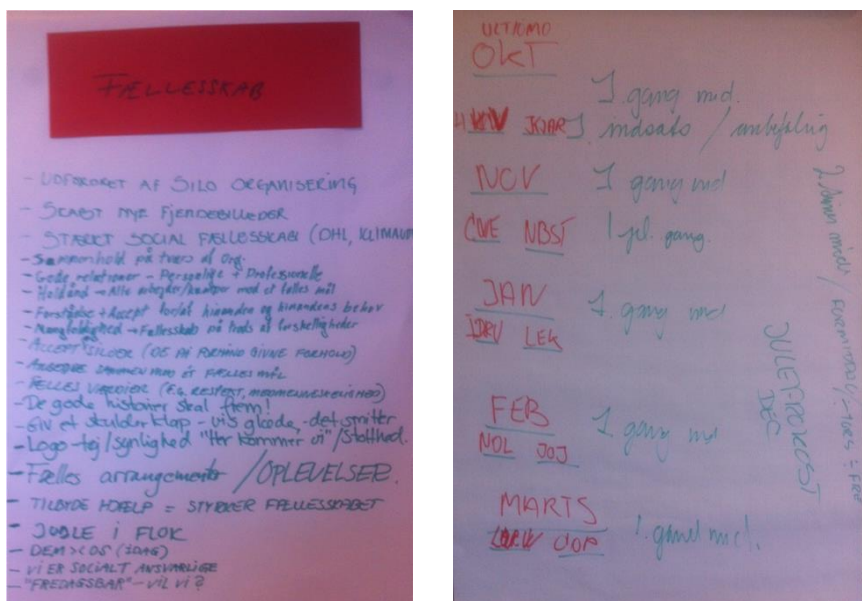 FÆLLESSKAB
- UDFORDRET AF SILO ORGANISERING
- SKABT NYE FJENDEBILLEDER
- STÆRKT SOCIAL FÆLLESSKAB (DHL, KLIMA
- Sammenhold på tværs af Org.
- Gode relationer - Personlige + Professionelle
- Holdånd → Alle arbejder/kæmper mod et fælles mål
- Forståelse + Accept for/af hinanden og hinandens behov
- Mangfoldighed → Fællesskab på trods af forskelligheder
- ACCEPT SILOER (DE PÅ FORHÅND GIVNE FORHOLD)
- ARBEJDE SAMMEN MOD ET FÆLLES MÅL
- FÆLLES VÆRDIER (F.G. RESPEKT, MEDMENNESKELIGHED)
- De gode historier skal frem!
- Giv et skulderklap - vis glæde, - det smitter
- Logo-tøj/synlighed "Her kommer vi"/Stolthed.
- Fælles arrangementer/OPLEVELSER.
- TILBYDE HJÆLP = STYRKER FÆLLESSKABET
- JODLE I FLOK
- DEM > < OS (IDAG)
- VI ER SOCIALT ANSVARLIGE
- "FREDAGSBAR" - VIL VI?
ULTIMO
OKT
1. gang md.
JQAR 1 indsats / anbefaling
NOV 1 gang md
CWE NBST 1 gang.
JAN 1. gang md
LEK
FEB 1 gang md
NOL JOJ
MARTS
JOP 1. gang md.
JULEFROKOST
DEC